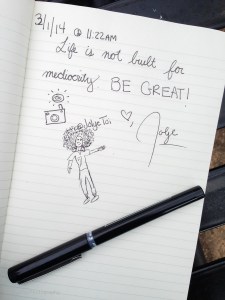 3/1/14 @ 11:22AM
Life is not built for
mediocrity. BE GREAT!